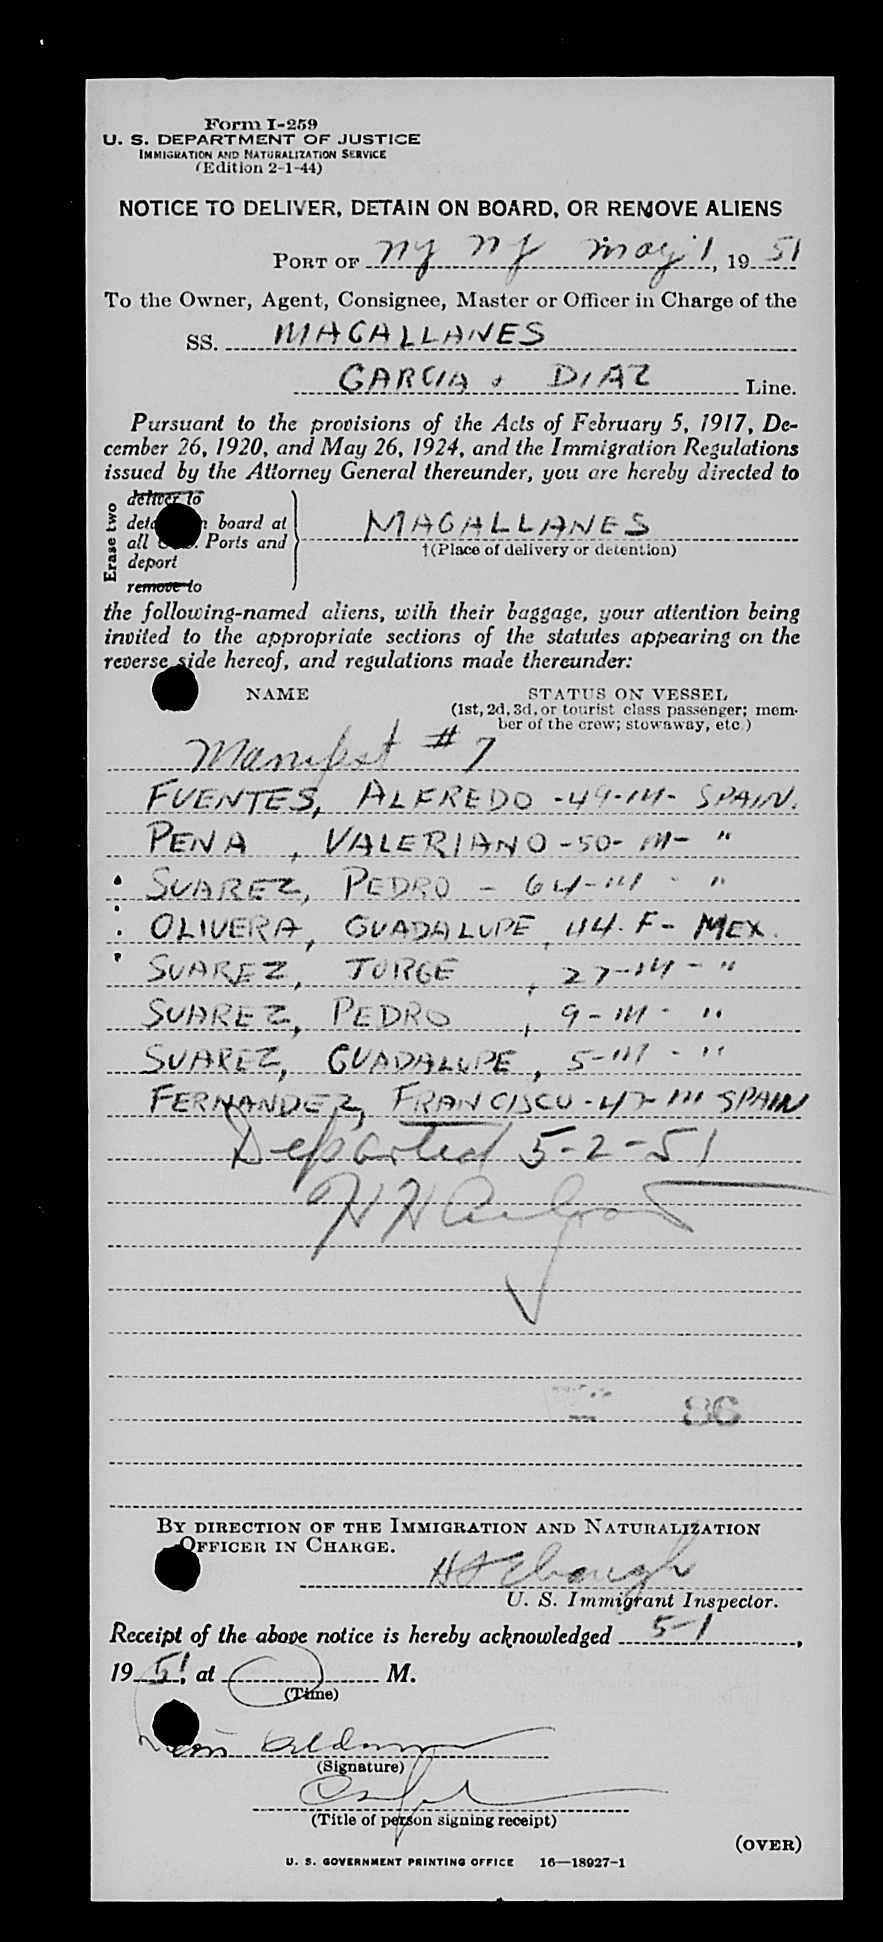 Form I-259
U. S. DEPARTMENT OF JUSTICE
IMMIGRATION AND NATURALIZATION SERVICE
(Edition 2-1-44)
NOTICE TO DELIVER, DETAIN ON BOARD, OR REMOVE ALIENS
PORT OF NY NY May 1, 1951
To the Owner, Agent, Consignee, Master or Officer in Charge of the
SS. MAGALLANES
GARCIA & DIAZ Line.
Pursuant to the provisions of the Acts of February 5, 1917, De-
cember 26, 1920, and May 26, 1924, and the Immigration Regulations
issued by the Attorney General thereunder, you are hereby directed to
Erase two
deliver to
board at
all Ports and
deport
remove to
MAGALLANES
†(Place of delivery or detention)
the following-named aliens, with their baggage, your attention being
invited to the appropriate sections of the statutes appearing on the
reverse side hereof, and regulations made thereunder:
NAME STATUS ON VESSEL
(1st, 2d, 3d, or tourist class passenger; mem-
ber of the crew; stowaway, etc.)
Manifest # 7
FUENTES, ALFREDO -49-M- SPAIN.
PENA, VALERIANO -50- M- "
SUAREZ, PEDRO - 64-M - "
OLIVERA, GUADALUPE, 44. F- MEX.
SUAREZ, JORGE, 27-M- "
SUAREZ, PEDRO, 9-M- "
SUAREZ, GUADALUPE, 5-M - "
FERNANDEZ, FRANCISCO -47- M SPAIN
Departed 5-2-51
86
BY DIRECTION OF THE IMMIGRATION AND NATURALIZATION
OFFICER IN CHARGE.
U. S. Immigrant Inspector.
Receipt of the above notice is hereby acknowledged 5-1,
1951, at M.
(Time)
(Signature)
(Title of person signing receipt)
(OVER)
U. S. GOVERNMENT PRINTING OFFICE 16—18927-1